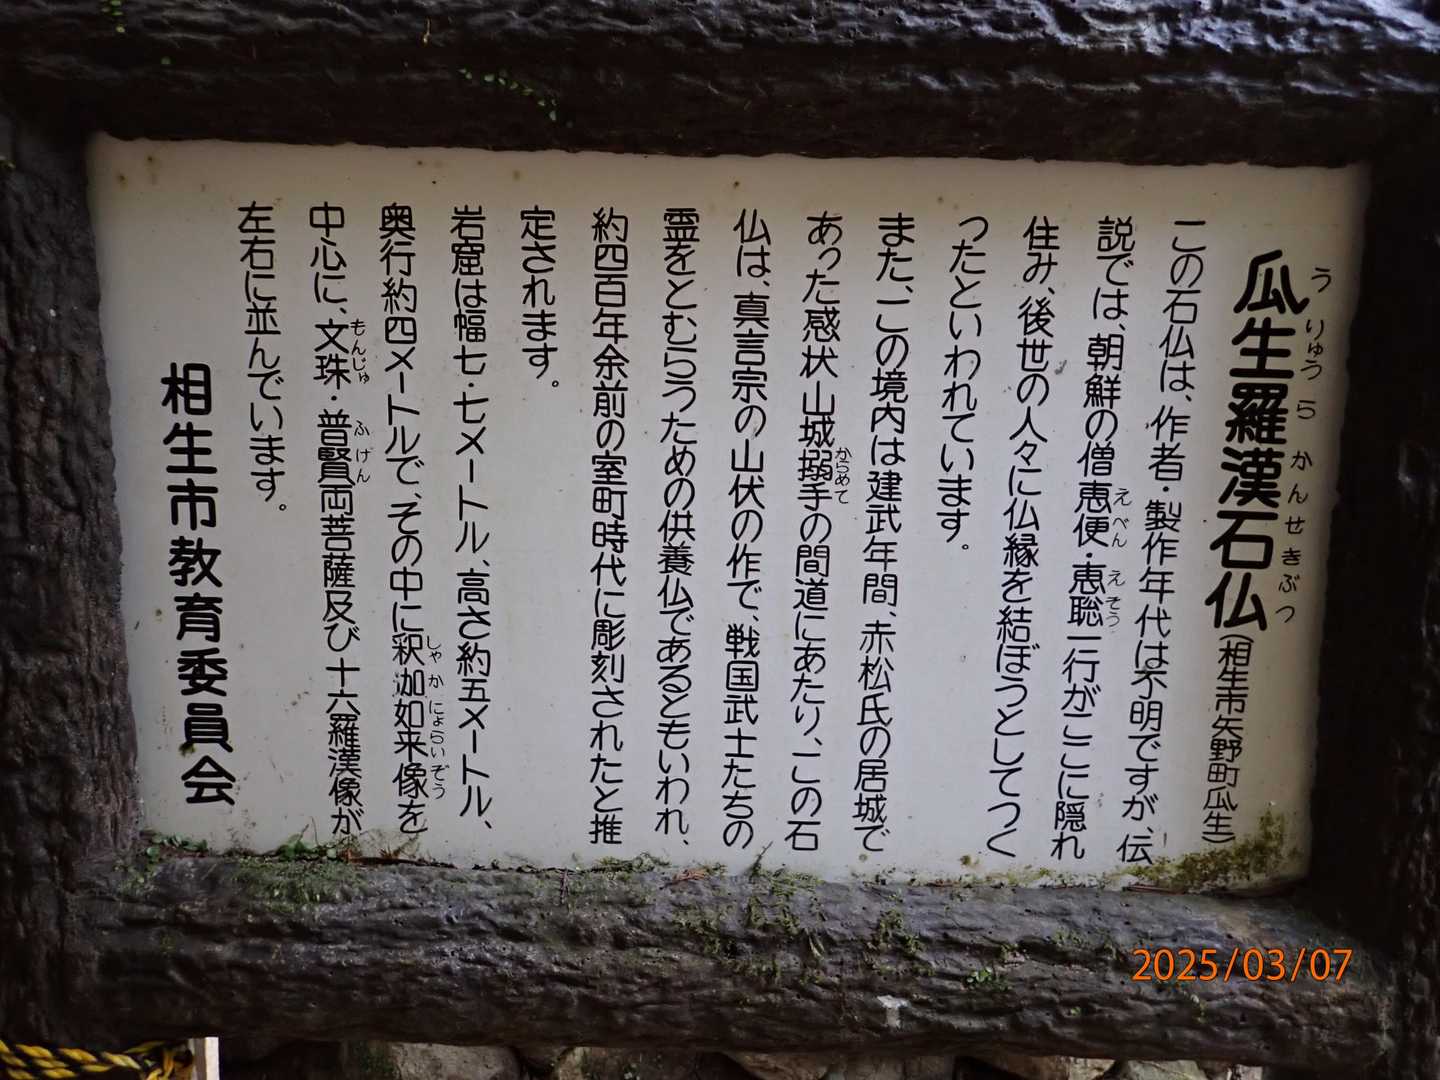 瓜生羅漢石仏（相生市矢野町瓜生）
うりゅうらかんせきぶつ
この石仏は、作者・製作年代は不明ですが、伝
説では、朝鮮の僧恵便・恵聡一行がここに隠れ
えべん えそう
住み、後世の人々に仏縁を結ぼうとしてつく
ったといわれています。
また、この境内は建武年間、赤松氏の居城で
あった感状山城搦手の間道にあたり、この石
からめて
仏は、真言宗の山伏の作で、戦国武士たちの
霊をとむらうための供養仏であるともいわれ、
約四百年余前の室町時代に彫刻されたと推
定されます。
岩窟は幅七・七メートル、高さ約五メートル、
奥行約四メートルで、その中に釈迦如来像を
しゃか にょらいぞう
中心に、文珠・普賢両菩薩及び十六羅漢像が
もんじゅ ふげん
左右に並んでいます。
相生市教育委員会
2025/03/07